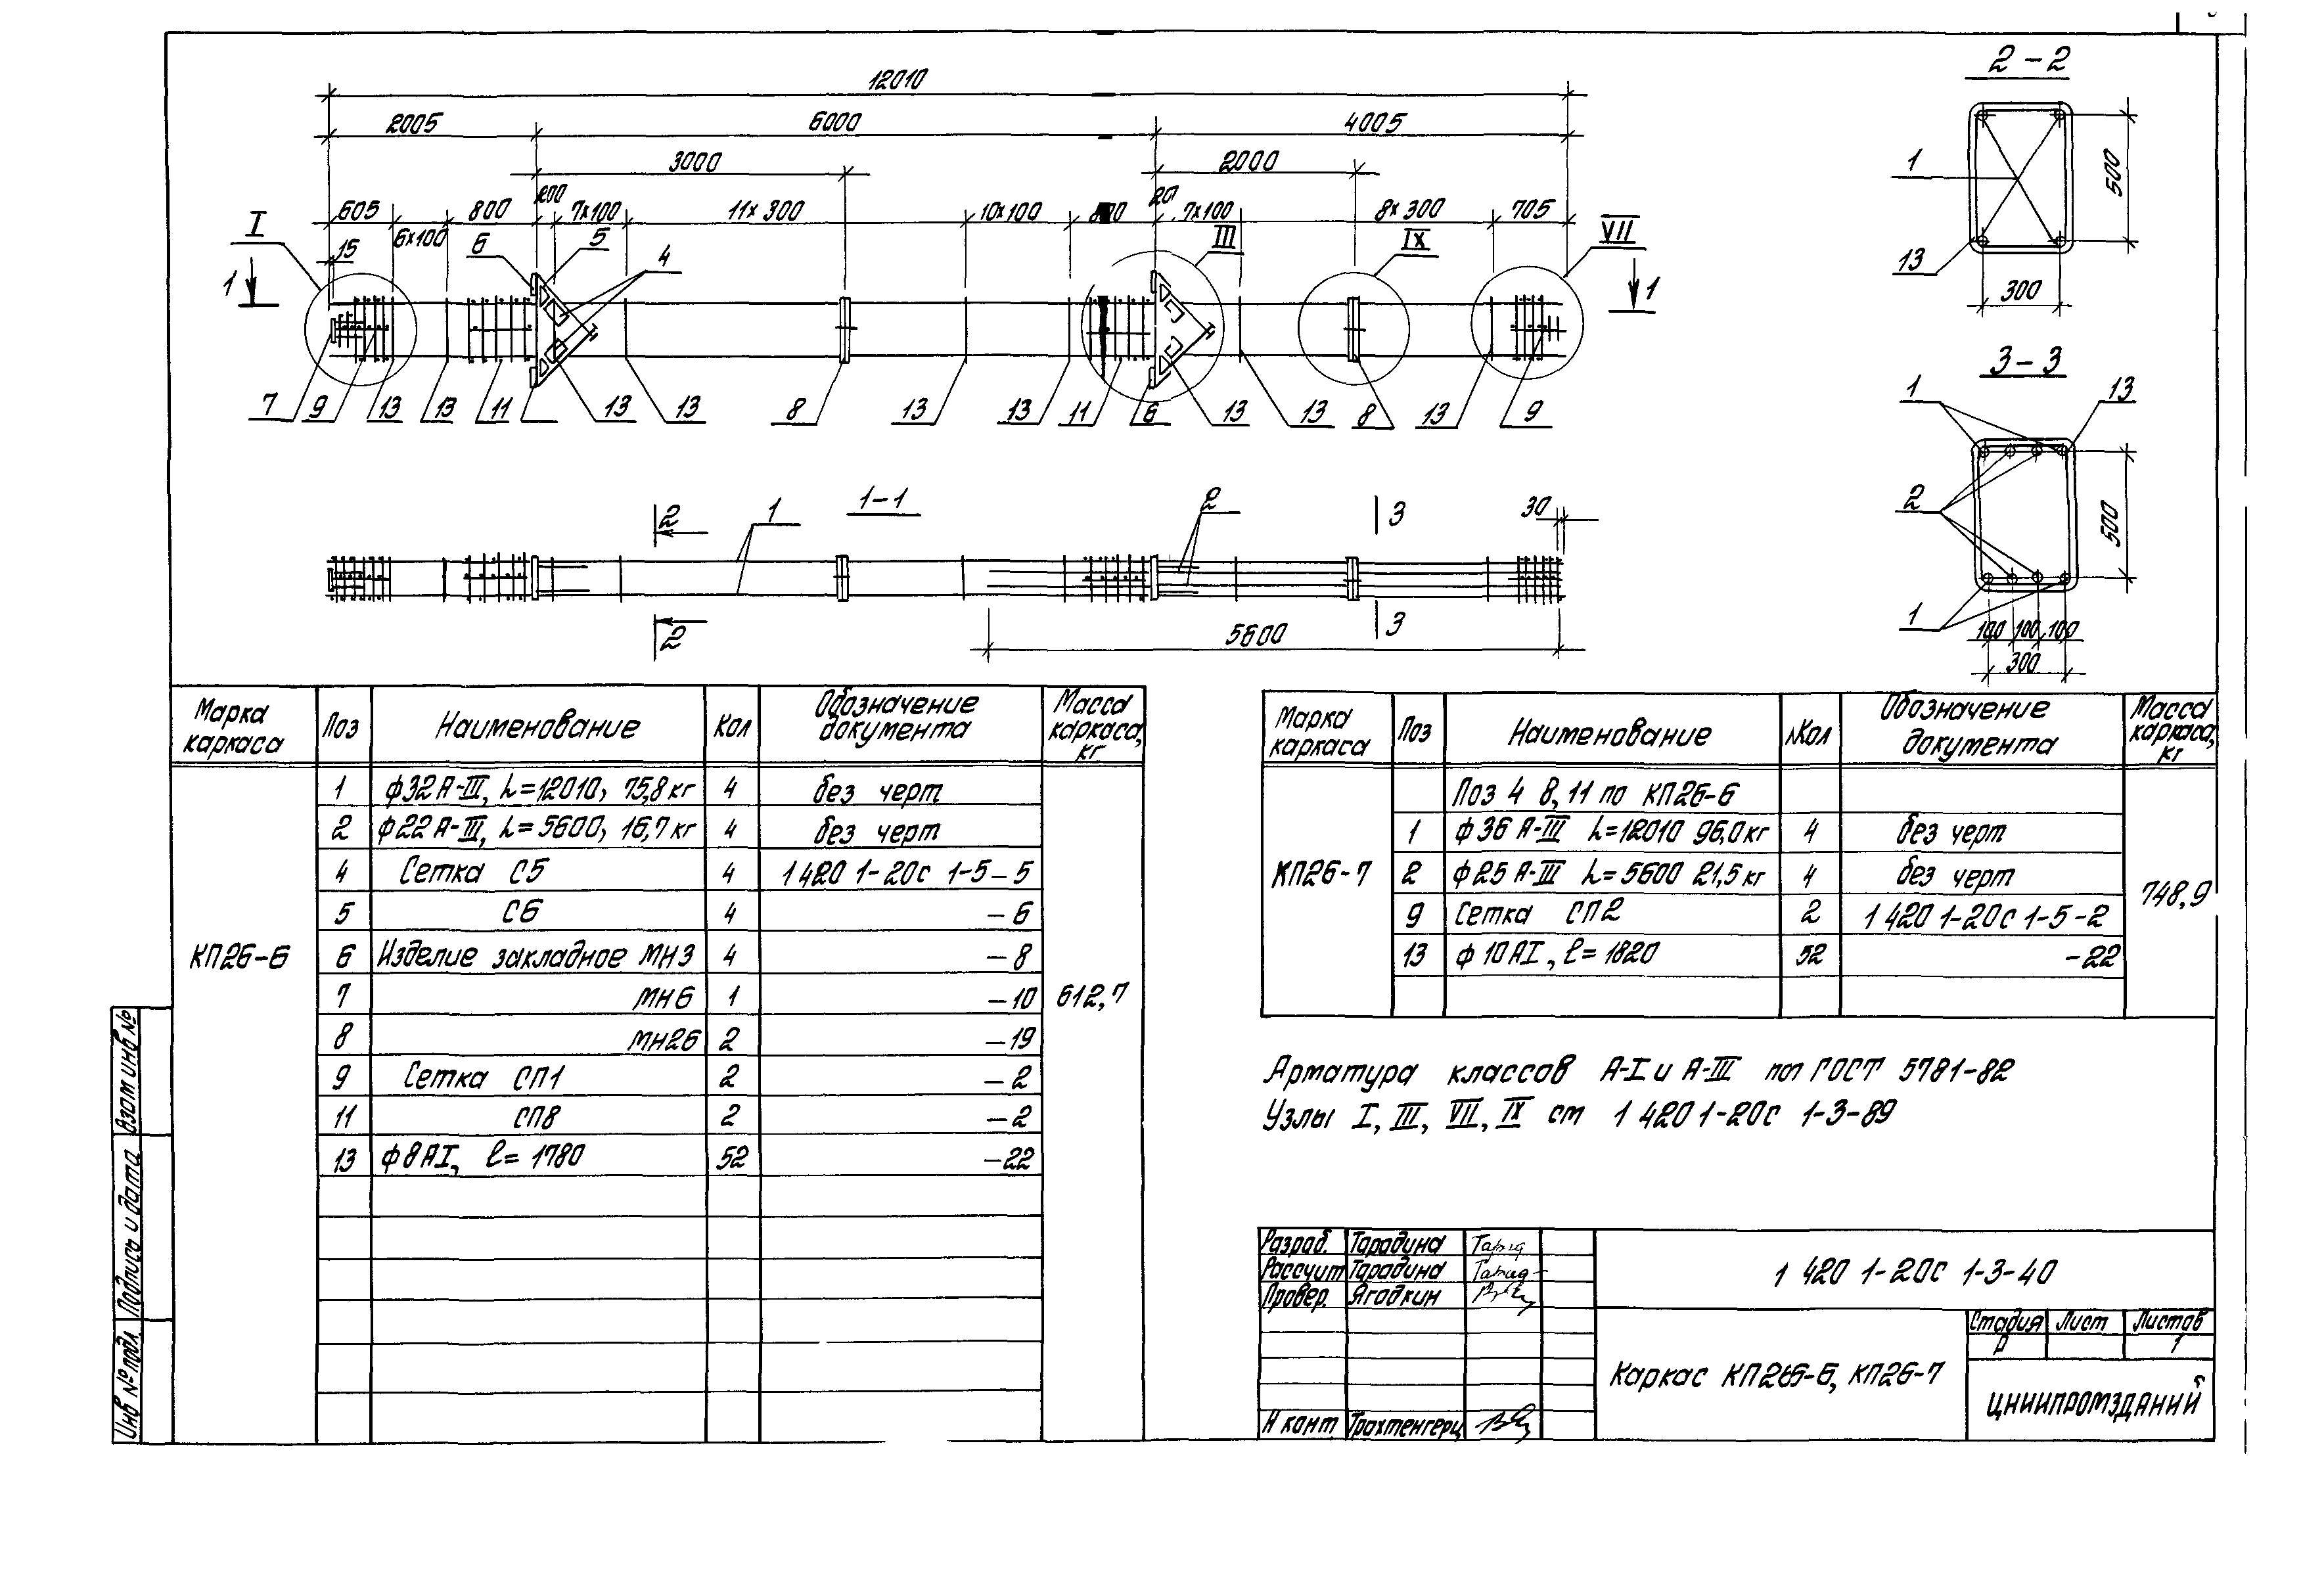 12010
2005 6000 4005
3000 2000
605 800 200 7×100 11×300 10×100 7×100 8×300 705
15 6×100
I 6 5 4 III IX VII
1 1
7 9 13 13 11 13 13 8 13 13 11 6 13 13 8 13 9
2-2
1
500
13
300
3-3
1 13
2
500
1
100 100 100
300
1-1
2 1 2 3 30
2 3
5600
Марка каркаса Поз Наименование Кол Обозначение документа Масса каркаса, кг
КП26-6 612,7
1 ф32 А-III, L=12010, 75,8 кг 4 без черт
2 ф22 А-III, L=5600, 16,7 кг 4 без черт
4 Сетка С5 4 1 420 1-20с 1-5-5
5 С6 4 -6
6 Изделие закладное МН3 4 -8
7 МН6 1 -10
8 МН26 2 -19
9 Сетка СП1 2 -2
11 СП8 2 -2
13 ф8АI, l= 1780 52 -22
Марка каркаса Поз Наименование Кол Обозначение документа Масса каркаса, кг
КП26-7 748,9
Поз 4 8, 11 по КП26-6
1 ф36 А-III L=12010 96,0 кг 4 без черт
2 ф25 А-III L=5600 21,5 кг 4 без черт
9 Сетка СП2 2 1 420 1-20с 1-5-2
13 ф 10АI, l= 1820 52 -22
Арматура классов А-I и А-III по ГОСТ 5781-82
Узлы I, III, VII, IX см 1 420 1-20с 1-3-89
Разраб. Тарадина
Рассчит Тарадина
Провер. Ягодкин
Н конт Трахтенгерц
1 420 1-20с 1-3-40
Каркас КП26-6, КП26-7
Стадия Лист Листов
Р 1
ЦНИИПРОМЗДАНИЙ
Взам инв №
Подпись и дата
Инв № подл.